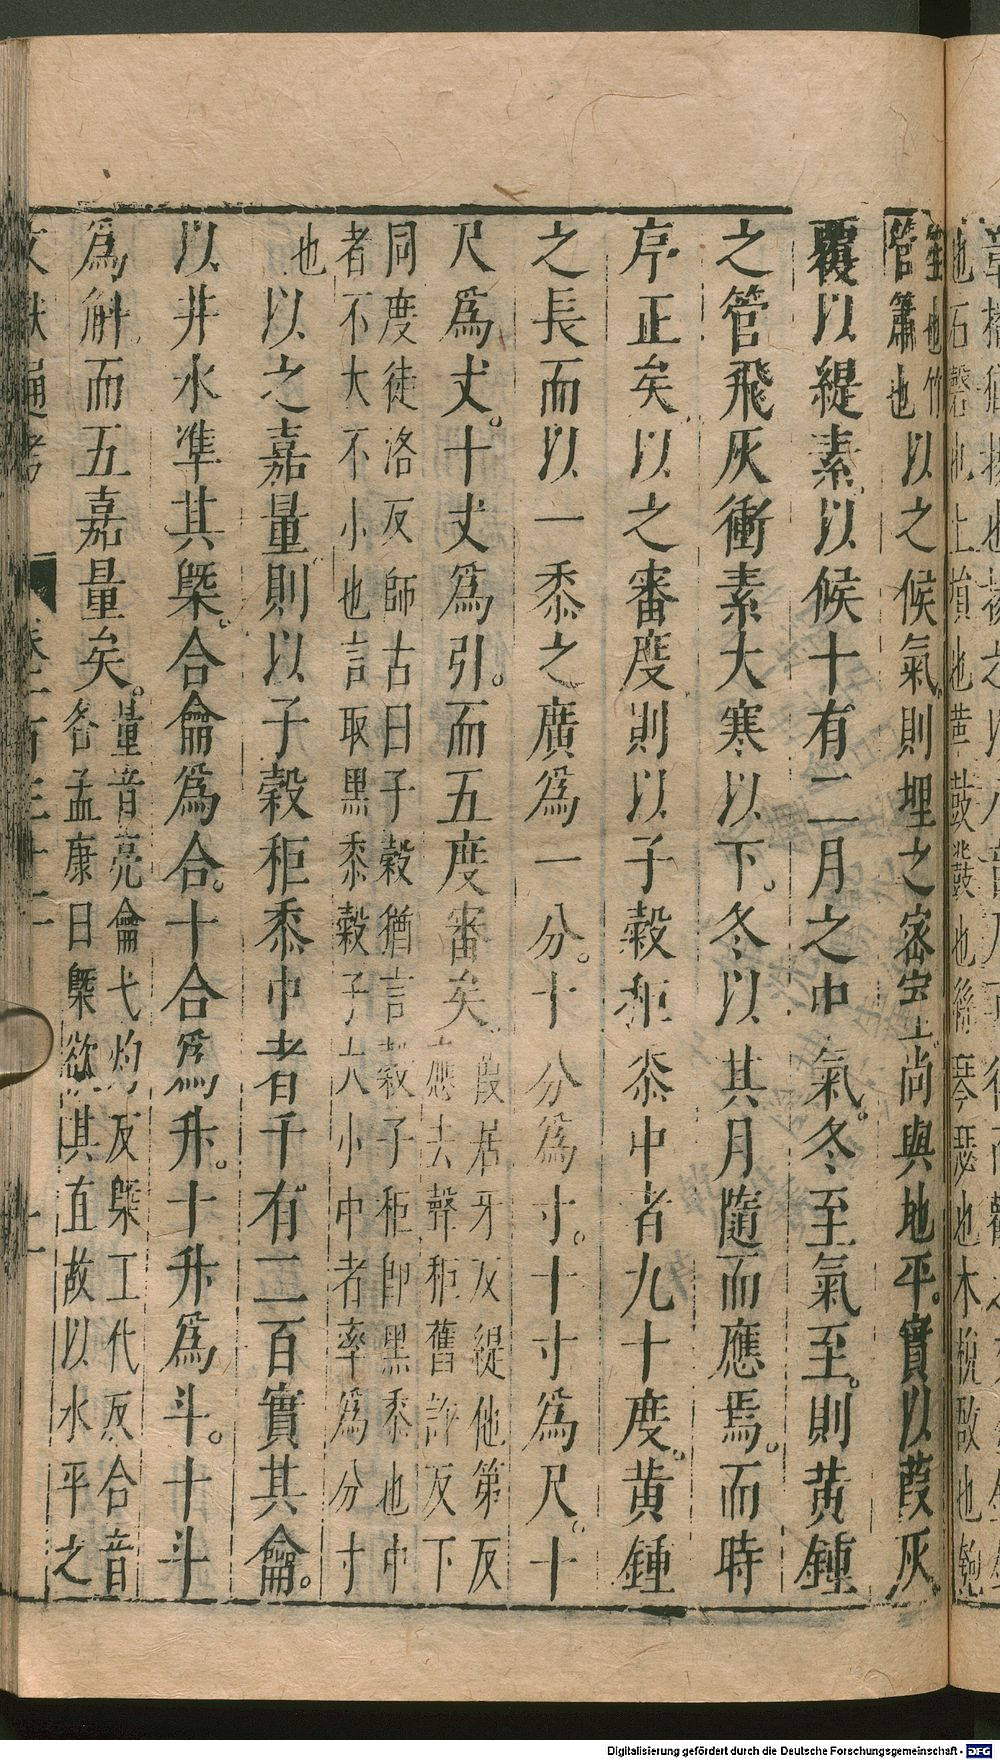 也石磬也土塤也革鼓鼗也絲琴瑟也木柷敔也匏
笙也竹
管簫也
以之候氣則埋之密室上尚與地平。實以葭灰
覆以緹素以候十有二月之中氣。冬至氣至。則黃鍾
之管飛灰衝素大寒以下。冬以其月隨而應焉。而時
序正矣以之審度則以子穀秬黍中者九十度。黃鍾
之長而以一黍之廣爲一分。十分爲寸。十寸爲尺。十
尺爲丈。十丈爲引。而五度審矣
葭居牙反緹他第反
應去聲秬舊許反下
同度徒洛反師古曰子穀猶言穀子秬即黑黍也中
者不大不小也言取黑黍穀子大小中者率爲分寸
也
以之嘉量則以子穀秬黍中者千有二百實其龠。
以井水準其槩。合龠爲合。十合爲升。十升爲斗。十斗
爲斛而五嘉量矣。
量音亮龠弋灼反槩工代反合音
各孟康曰槩欲其直故以水平之
文獻通考
Digitalisierung gefördert durch die Deutsche Forschungsgemeinschaft - DFG